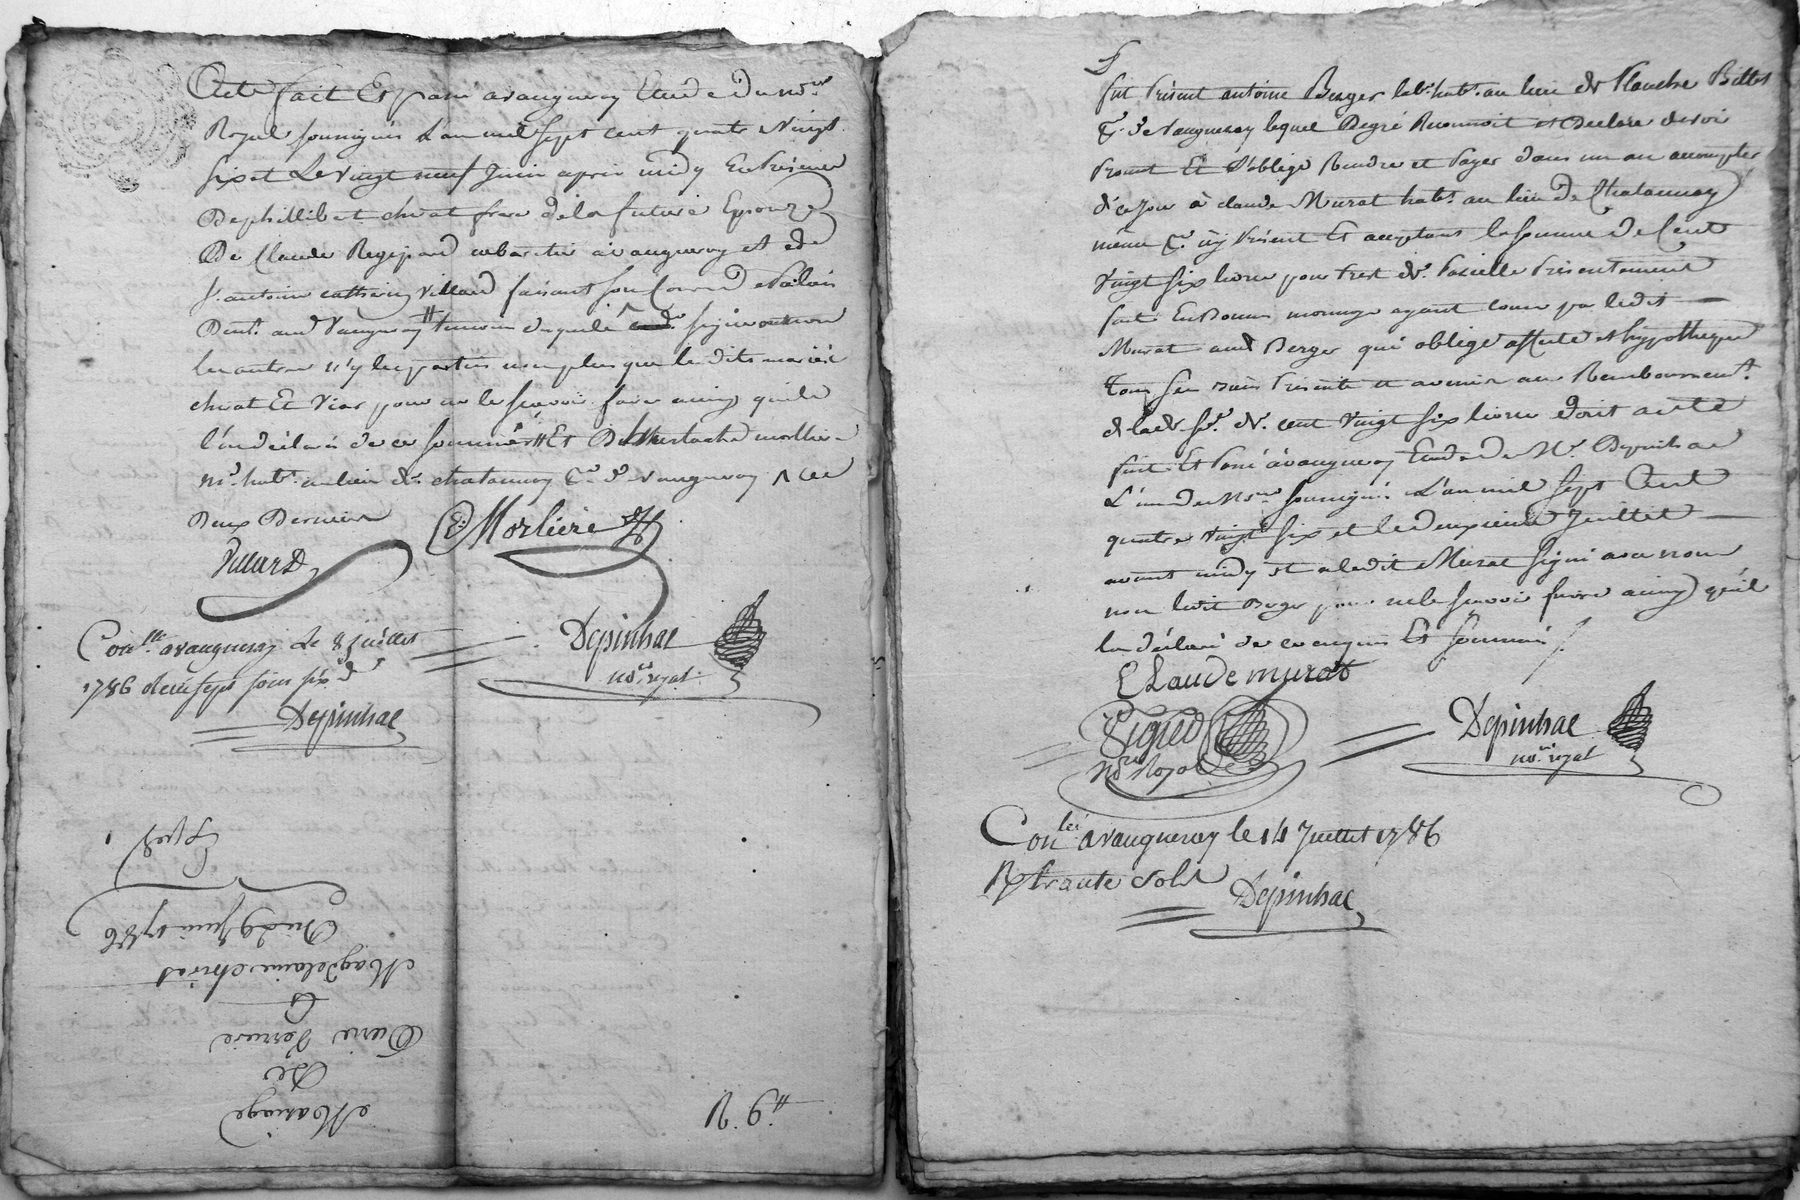 Acte fait Et passé a vaugneray Etude du no.re
Royal soussigné L'an mil sept cent quatre Vingt
six et Le Vingt neuf Juin apres midy En Présence
De phillibert chirat frere de la future Epouze
De Claude Regipard cabartier a vaugneray et de
S.r antoine catherin Villard faisant
Dem.t aud Vaugneray temoins
les autres n'y les parties non plus que le dits mariés
chirat Et pour ne le sçavoir faire ainsy qu'ils
l'on déclaré de ce sommés Et De Eustache morliere
m.d hab.t au lieu de chatannay P.sse de vaugneray
Deux Derniers
Villard
E: Morliere
Depinhac
no.re royal
Con.llé a vaugneray Le 8 Juillet
1786 Reçu sept sous six d
Depinhac
Mariage
De
Pierre
Et
Magdelaine chirat
Du 29 Juin 1786
Exped
n. 9.
fut Présent antoine Berger lab.r hab.t au lieu de Planche Billet
P.sse de Vaugneray lequel Degré Reconnoit et Declare devoir
Promet Et S'oblige Rendre et Payer dans un an acompter
de ce jour à claude Murat hab.t au lieu de Chatannay
même P.sse icy Présent Et acceptant la somme de Cent
Vingt six livres pour Prest de Pareille Présentement
fait En Bonne monnoye ayant cours par ledit
Murat aud Berger qui oblige affecte et hyppotheque
Tous ses biens Présents et avenir au Remboursem.t
de lad.e S.e de cent Vingt six livres dont acte
fait Et Passé à vaugneray Etude de M.e Depinhac
L'un des No.res soussignés L'an mil sept Cent
quatre Vingt six et le deuxieme Juillet
avant midy et a ledit Murat signé avec nous
non ledit Berger pour ne le sçavoir faire ainsy qu'il
la déclaré de ce enquis Et sommé
Claude murat
no.re Royal
Depinhac
no.re royal
Con.llé a vaugneray le 14 Juillet 1786
R trante sols
Depinhac